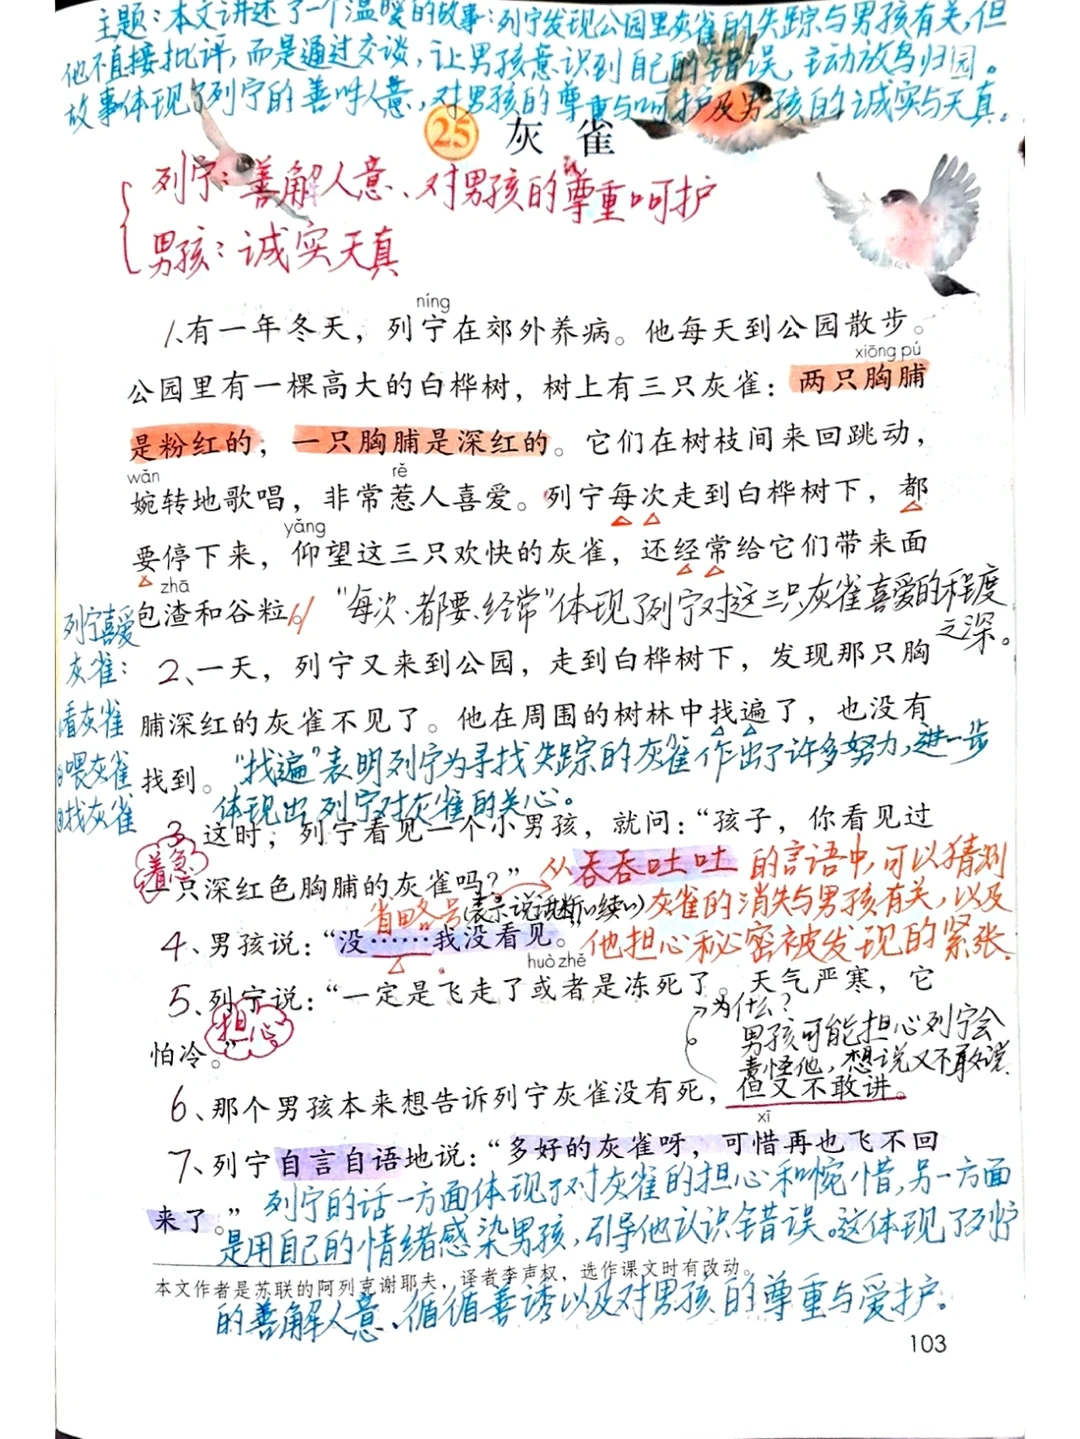 主题：本文讲述了一个温暖的故事：列宁发现公园里灰雀的失踪与男孩有关，但
他不直接批评，而是通过交谈，让男孩意识到自己的错误，主动放鸟归园。
故事体现了列宁的善解人意，对男孩的尊重与呵护及男孩的诚实与天真。
25 灰雀
列宁：善解人意、对男孩的尊重呵护
男孩：诚实天真
níng
1、有一年冬天，列宁在郊外养病。他每天到公园散步。
xiōng pú
公园里有一棵高大的白桦树，树上有三只灰雀：两只胸脯
是粉红的；一只胸脯是深红的。它们在树枝间来回跳动，
wǎn rě
婉转地歌唱，非常惹人喜爱。列宁每次走到白桦树下，都
yǎng
要停下来，仰望这三只欢快的灰雀，还经常给它们带来面
zhā
包渣和谷粒。
“每次、都要、经常”体现了列宁对这三只灰雀喜爱的程度
之深。
列宁喜爱
灰雀：
看灰雀
喂灰雀
找灰雀
2、一天，列宁又来到公园，走到白桦树下，发现那只胸
脯深红的灰雀不见了。他在周围的树林中找遍了，也没有
找到。
“找遍”表明列宁为寻找失踪的灰雀作出了许多努力，进一步
体现出列宁对灰雀的关心。
3、这时，列宁看见一个小男孩，就问：“孩子，你看见过
着急
一只深红色胸脯的灰雀吗？”
从吞吞吐吐的言语中，可以猜测
灰雀的消失与男孩有关，以及
他担心秘密被发现的紧张
省略号（表示说话断断续续）
4、男孩说：“没……我没看见。”
huò zhě
5、列宁说：“一定是飞走了或者是冻死了。天气严寒，它
担心
怕冷。”
为什么？
男孩可能担心列宁会
责怪他，想说又不敢说。
6、那个男孩本来想告诉列宁灰雀没有死，但又不敢讲。
xī
7、列宁自言自语地说：“多好的灰雀呀，可惜再也飞不回
来了。”
列宁的话一方面体现了对灰雀的担心和惋惜，另一方面
是用自己的情绪感染男孩，引导他认识错误。这体现了列宁
本文作者是苏联的阿列克谢耶夫，译者李声权，选作课文时有改动。
的善解人意、循循善诱以及对男孩的尊重与爱护。
103